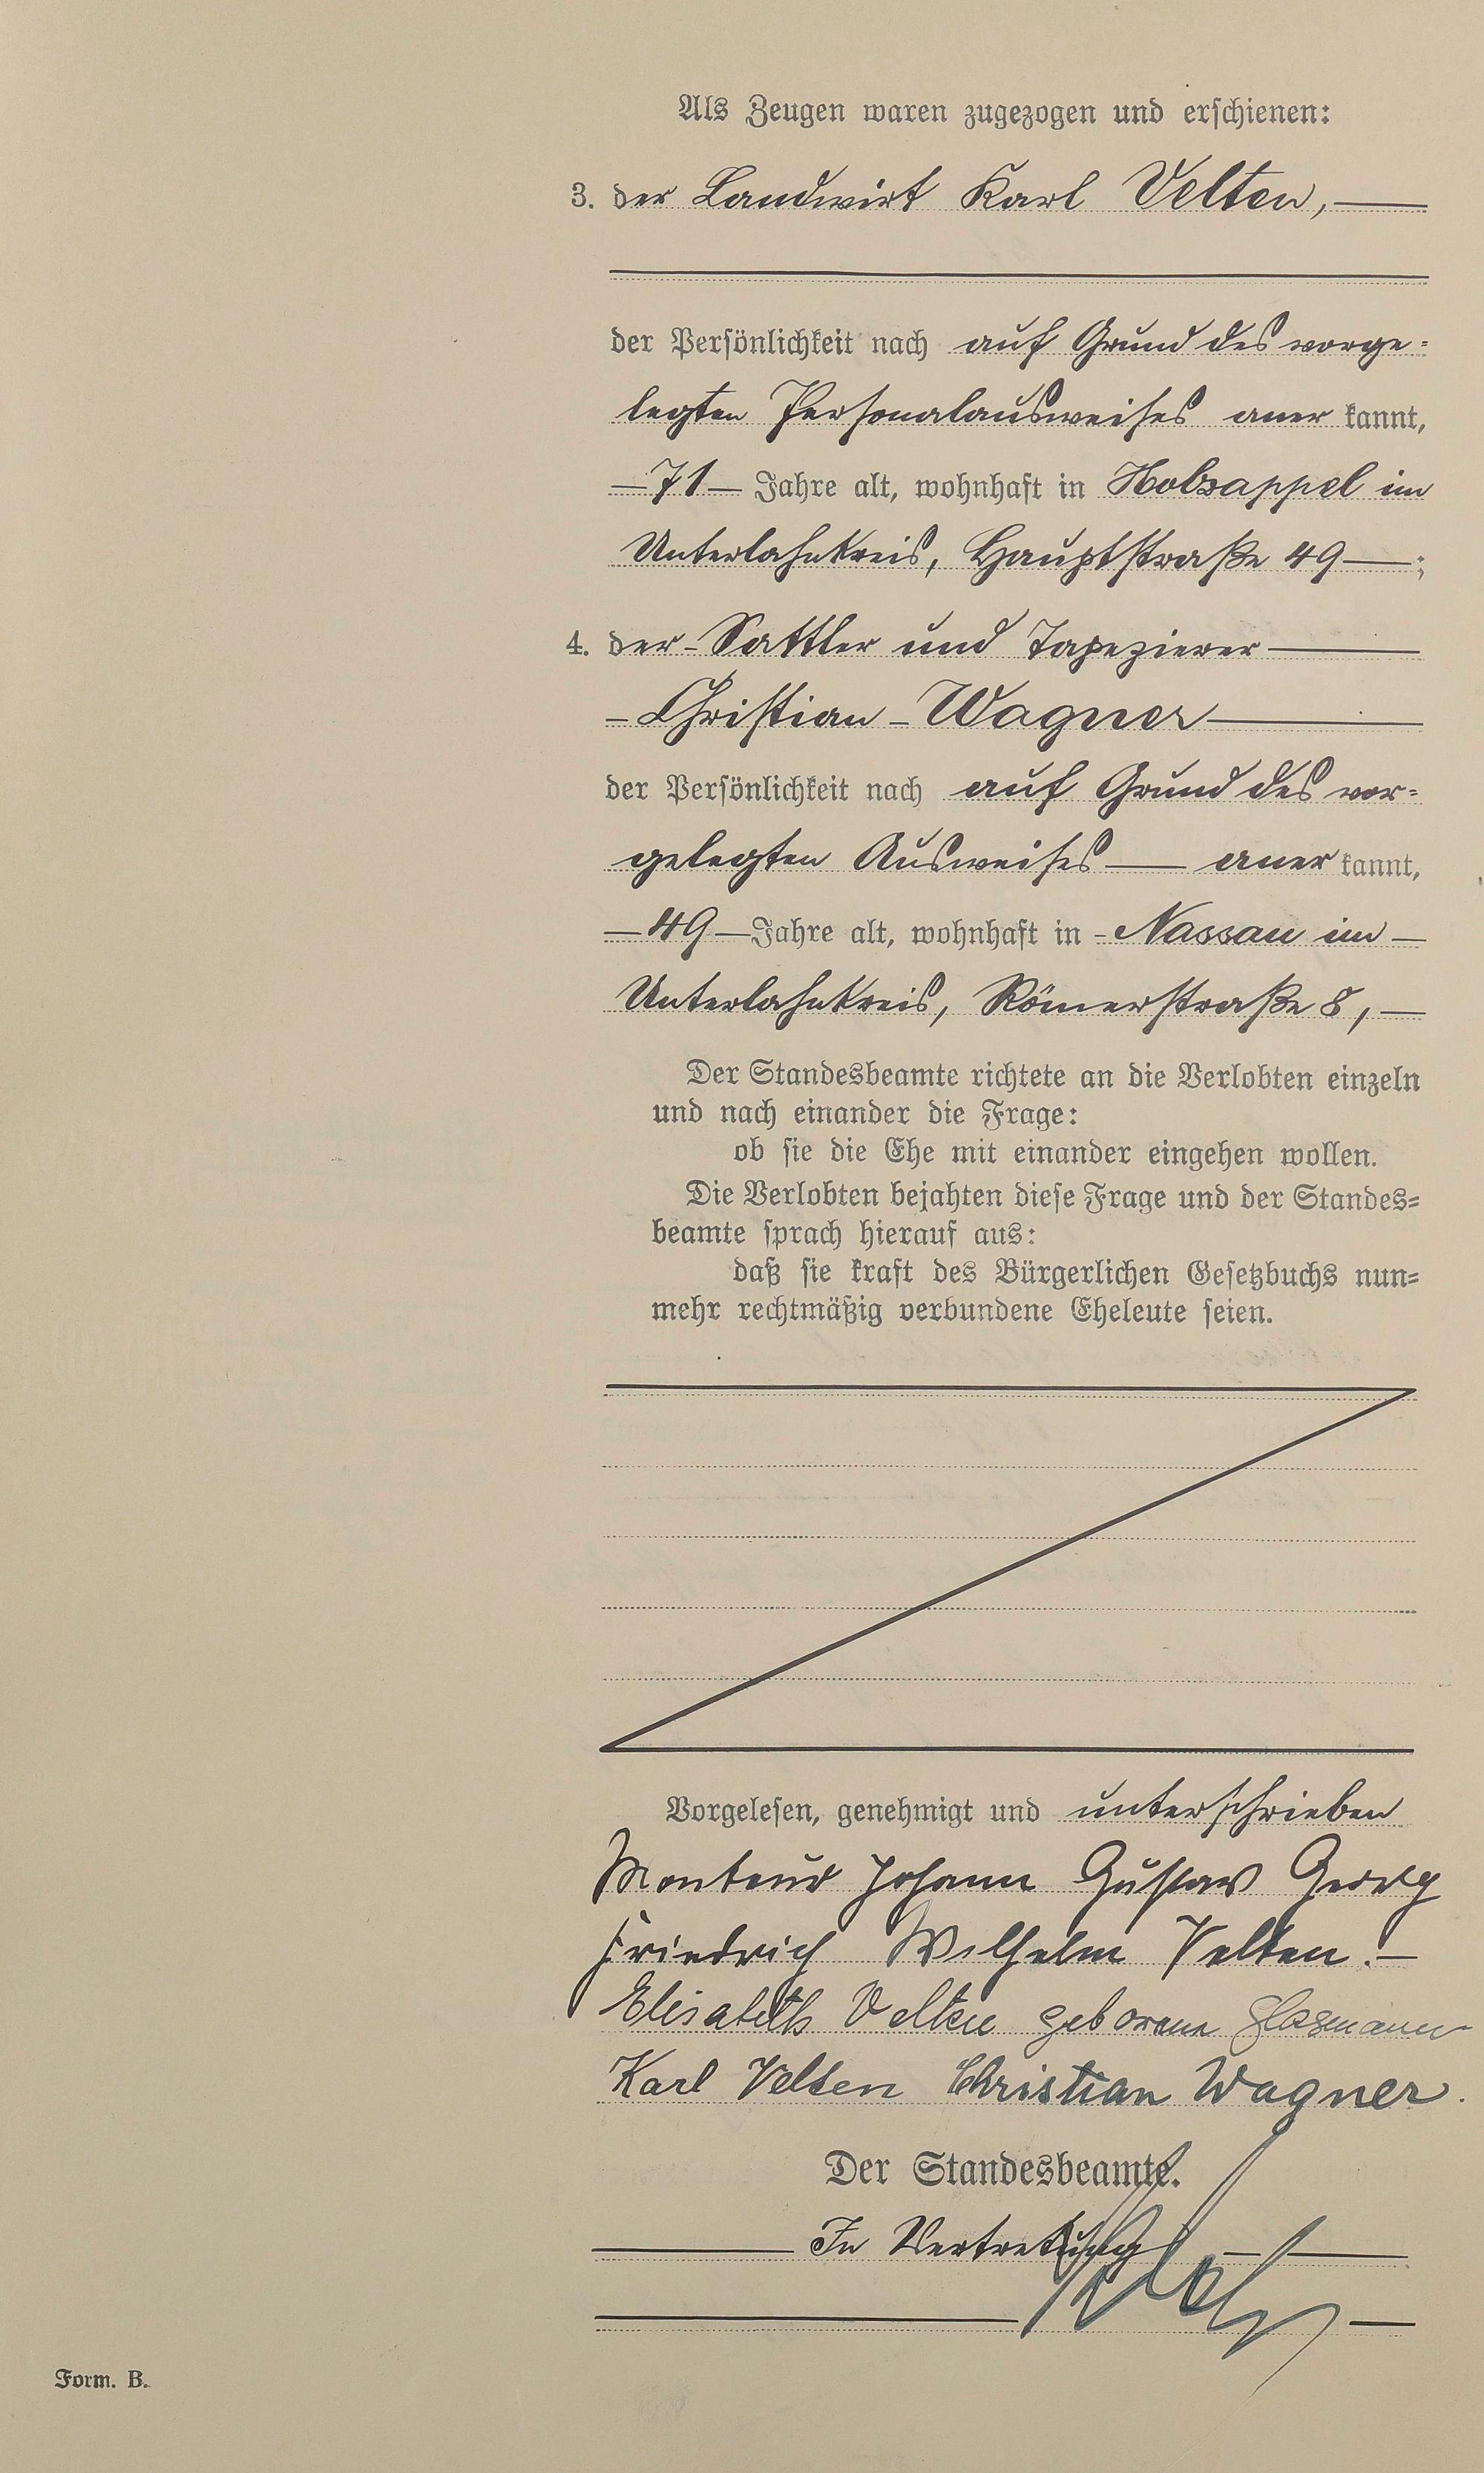 Als Zeugen waren zugezogen und erschienen:
3. der Landwirt Karl Velten,
der Persönlichkeit nach auf Grund des vorge=
legten Personalausweises aner kannt,
71 Jahre alt, wohnhaft in Holzappel im
Unterlahnkreis, Hauptstraße 49 ;
4. der Sattler und Tapezierer
Christian Wagner
der Persönlichkeit nach auf Grund des vor=
gelegten Ausweises aner kannt,
49 Jahre alt, wohnhaft in Nassau im
Unterlahnkreis, Römerstraße 8,
Der Standesbeamte richtete an die Verlobten einzeln
und nach einander die Frage:
ob sie die Ehe mit einander eingehen wollen.
Die Verlobten bejahten diese Frage und der Standes=
beamte sprach hierauf aus:
daß sie kraft des Bürgerlichen Gesetzbuchs nun=
mehr rechtmäßig verbundene Eheleute seien.
Vorgelesen, genehmigt und unterschrieben
Monteur Johann Gustav Georg
Friedrich Wilhelm Velten.
Elisabeth Velten geborene Glasmann
Karl Velten Christian Wagner.
Der Standesbeamte.
In Vertretung
Form. B.